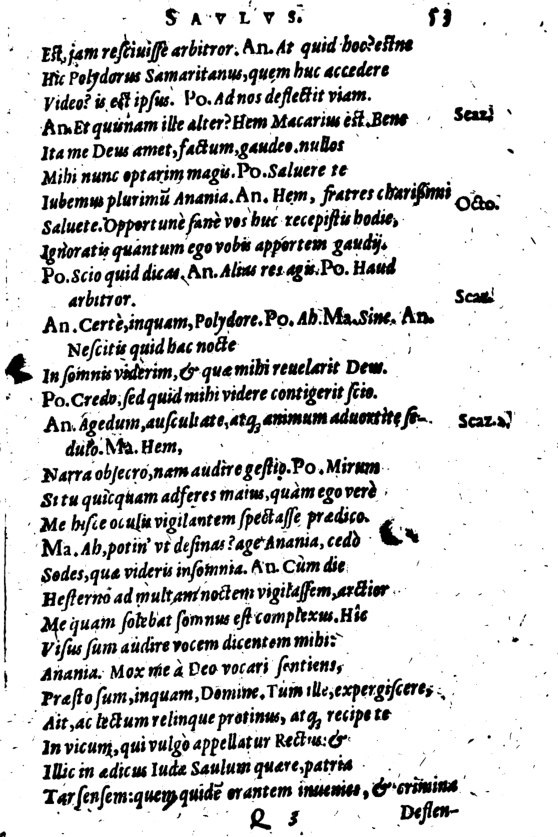 SAVLVS. 53
Est, jam resciuisse arbitror. An. At quid hoc? estne
Hic Polydorus Samaritanus, quem huc accedere
Video? is est ipsus. Po. Ad nos deflectit viam.
An. Et quisnam ille alter? Hem Macarius est. Bene Scaz.
Ita me Deus amet, factum, gaudeo. nullos
Mihi nunc optarim magis. Po. Saluere te
Iubemus plurimũ Anania. An. Hem, fratres charissimi Octo.
Saluete. Opportunè sanè vos huc recepistis hodie,
Ignoratis quantum ego vobis apportem gaudij.
Po. Scio quid dicas. An. Alias res agis. Po. Haud
arbitror. Scaz.
An. Certè, inquam, Polydore. Po. Ah. Ma. Sine. An.
Nescitis quid hac nocte
In somnis viderim, & quæ mihi reuelarit Deus.
Po. Credo, sed quid mihi videre contigerit scio.
An. Agedum, auscultate, atq; animum aduortite se- Scaz. 2.
dulo. Ma. Hem,
Narra obsecro, nam audire gestio. Po. Mirum
Si tu quicquam adferes maius, quàm ego verè
Me hisce oculis vigilantem spectasse prædico.
Ma. Ah, potin' vt desinas? age Anania, cedò
Sodes, quæ videris insomnia. An. Cùm die
Hesterno ad multam noctem vigilassem, arctior
Me quam solebat somnus est complexus. Hîc
Visus sum audire vocem dicentem mihi:
Anania. Mox me à Deo vocari sentiens,
Præsto sum, inquam, Domine. Tum ille, expergiscere,
Ait, ac lectum relinque protinus, atq; recipe te
In vicum, qui vulgò appellatur Rectus: &
Illic in ædicus Iudæ Saulum quære, patria
Tarsensem: quem quidẽ orantem inuenies, & crimina
Q 3 Deflen-